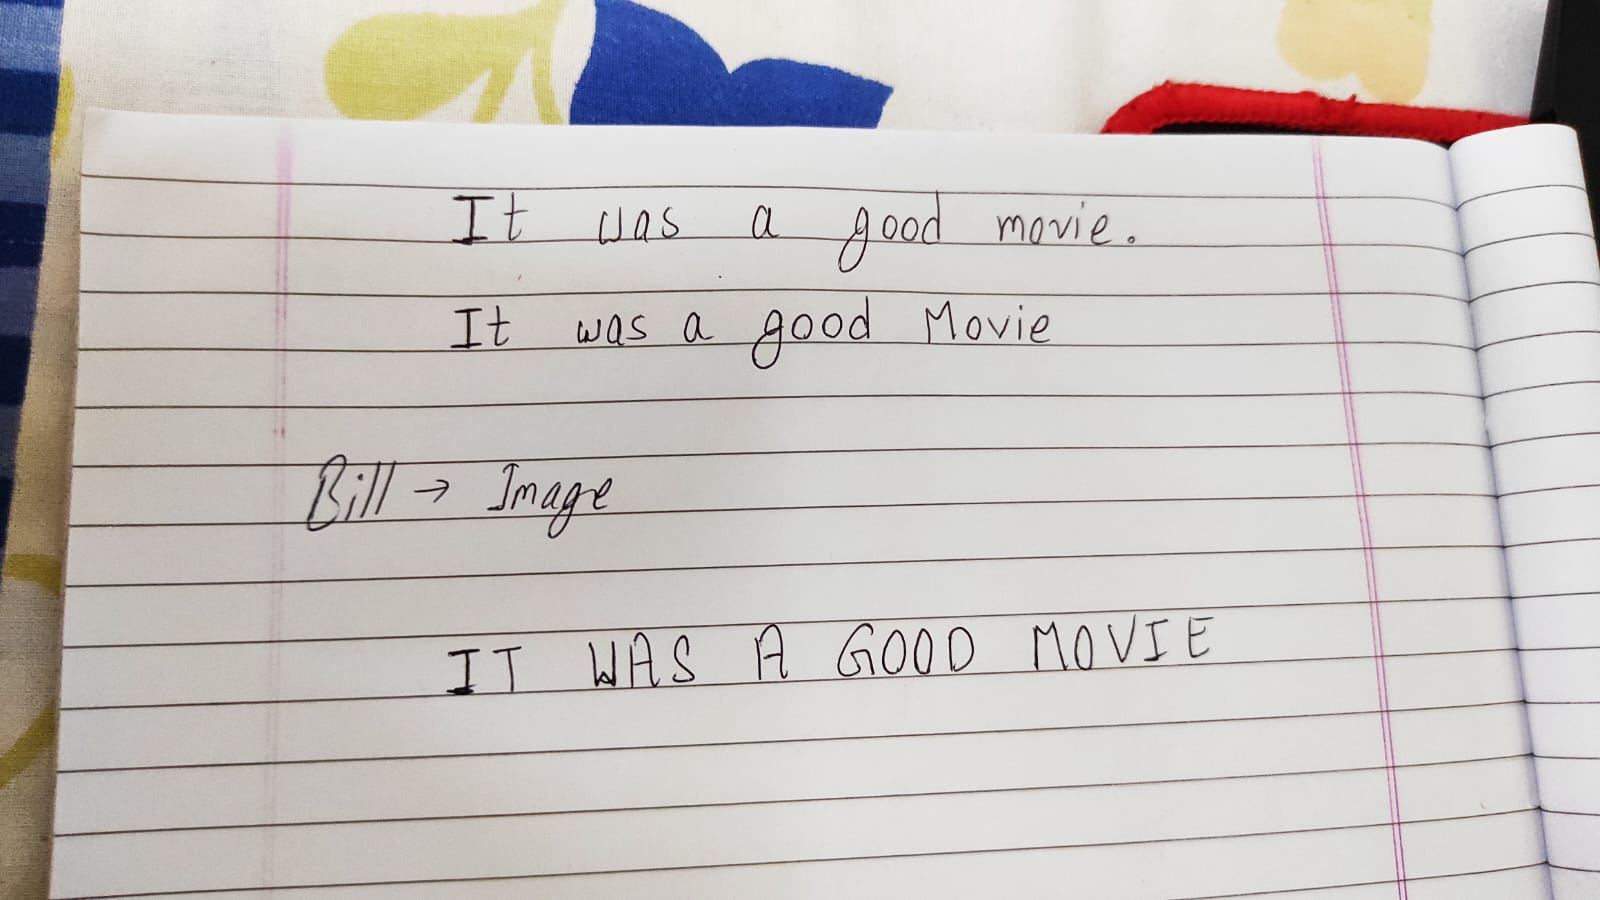 It was a good movie.
It was a good Movie
Bill → Image
IT WAS A GOOD MOVIE